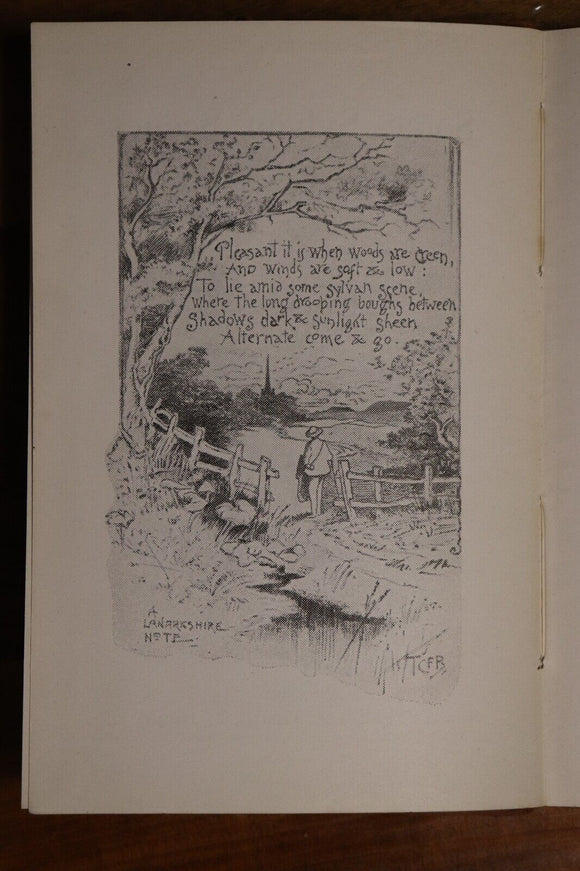 Pleasant it is when woods are Green,
And winds are soft & low:
To lie amid some sylvan scene,
where the long drooping boughs between
Shadows dark & Sunlight sheen
Alternate come & go.
A
LANARKSHIRE
NOTE
TCFB